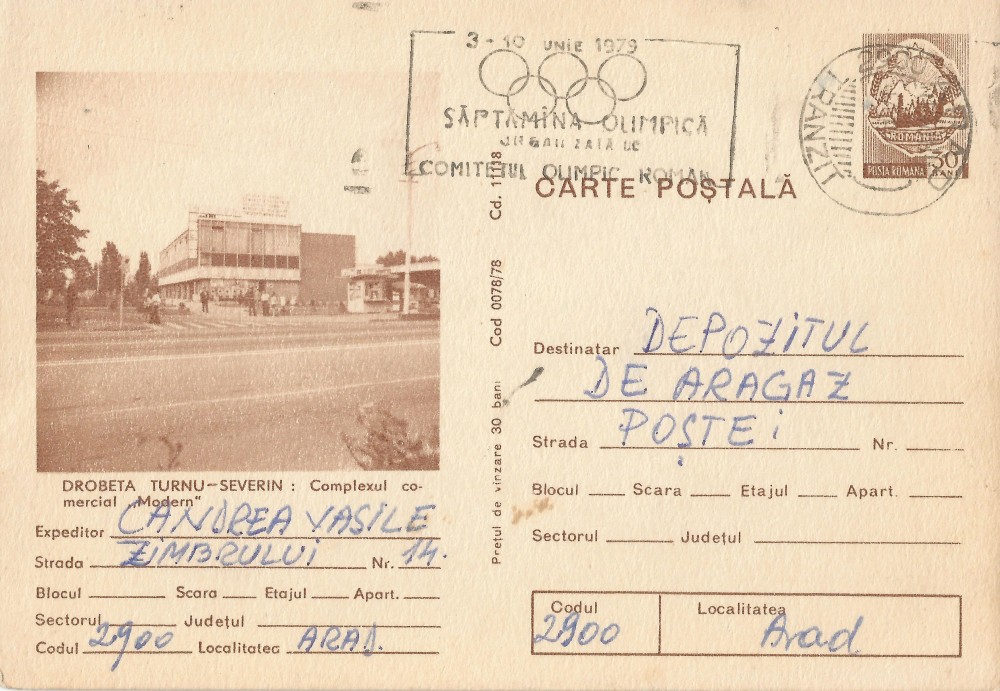 3 - 10 IUNIE 1979
SĂPTĂMÎNA OLIMPICĂ
ORGANIZATĂ DE
COMITETUL OLIMPIC ROMÂN
2900
TRANZIT
ROMANIA
POSTA ROMANA
30 BANI
CARTE POȘTALĂ
Prețul de vînzare 30 bani Cod 0078/78 Cd. 11118
DROBETA TURNU-SEVERIN : Complexul co-
mercial „Modern"
Expeditor CANDREA VASILE
Strada ZIMBRULUI Nr. 14.
Blocul Scara Etajul Apart.
Sectorul Județul
Codul 2900 Localitatea ARAD.
Destinatar DEPOZITUL
DE ARAGAZ
Strada POȘTEI Nr.
Blocul Scara Etajul Apart.
Sectorul Județul
Codul Localitatea
2900 Arad